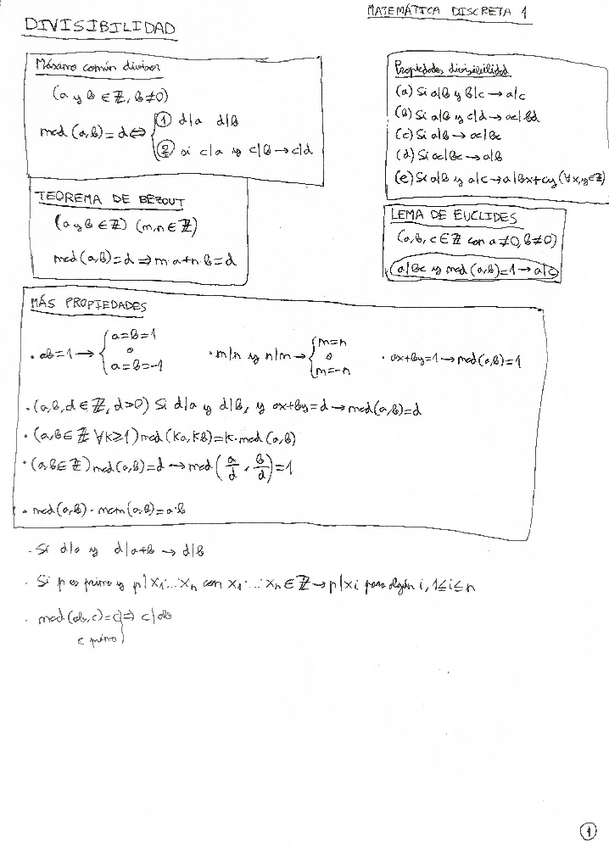 MATEMÁTICA DISCRETA 1
DIVISIBILIDAD
Máximo común divisor
(a y b ∈ Z, b≠0)
mcd (a,b)=d ⇔ { ① d|a d|b
② si c|a y c|b → c|d
Propiedades divisibilidad
(a) Si a|b y b|c → a|c
(b) Si a|b y c|d → ac|bd
(c) Si a|b → ac|bc
(d) Si ac|bc → a|b
(e) Si a|b y a|c → a|bx+cy (∀x,y∈Z)
TEOREMA DE BEZOUT
(a y b ∈ Z) (m,n ∈ Z)
mcd(a,b)=d ⇒ m·a+n·b=d
LEMA DE EUCLIDES
(a,b,c ∈ Z con a≠0, b≠0)
(a|bc y mcd(a,b)=1 → a|c)
MÁS PROPIEDADES
· ab=1 → { a=b=1 o a=b=-1
· m|n y n|m → { m=n o m=-n
· ax+by=1 → mcd(a,b)=1
· (a,b,d ∈ Z, d>0) Si d|a y d|b, y ax+by=d → mcd(a,b)=d
· (a,b ∈ Z ∀k≥1) mcd(ka,kb)=k·mcd(a,b)
· (a,b ∈ Z) mcd(a,b)=d → mcd(a/d, b/d)=1
· mcd(a,b)·mcm(a,b)=a·b
· Si d|a y d|a+b → d|b
· Si p es primo y p|x₁·...·xₙ con x₁·...·xₙ ∈ Z → p|xi para algún i, 1≤i≤n
· mcd(ab,c)=c} ⇒ c|ab
c primo
1